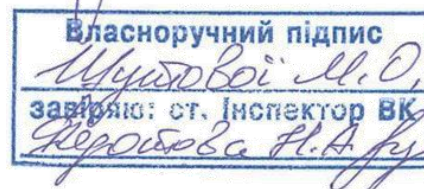 Власноручний підпис
Шутової М.О.
завіряю: ст. Інспектор ВК
Федотова Н.А.